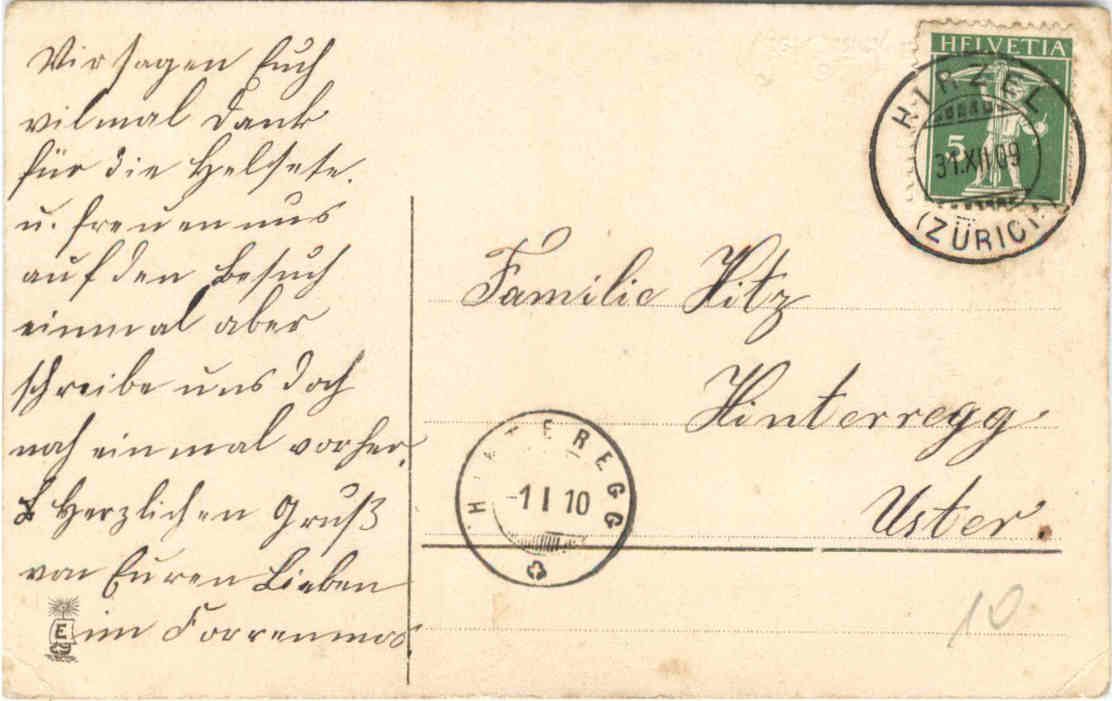 Wir sagen Euch
vilmal Dank
für die Helsete.
u. freuen uns
auf den Besuch
einmal aber
schreibe uns doch
noch einmal vorher.
Herzlichen Gruß
von Euren Lieben
im Forrenmos
HELVETIA
5
HIRZEL
31.XII.09
(ZÜRICH)
Familie Hitz
Hinterregg
Uster.
HINTEREGG
-1 I 10
10